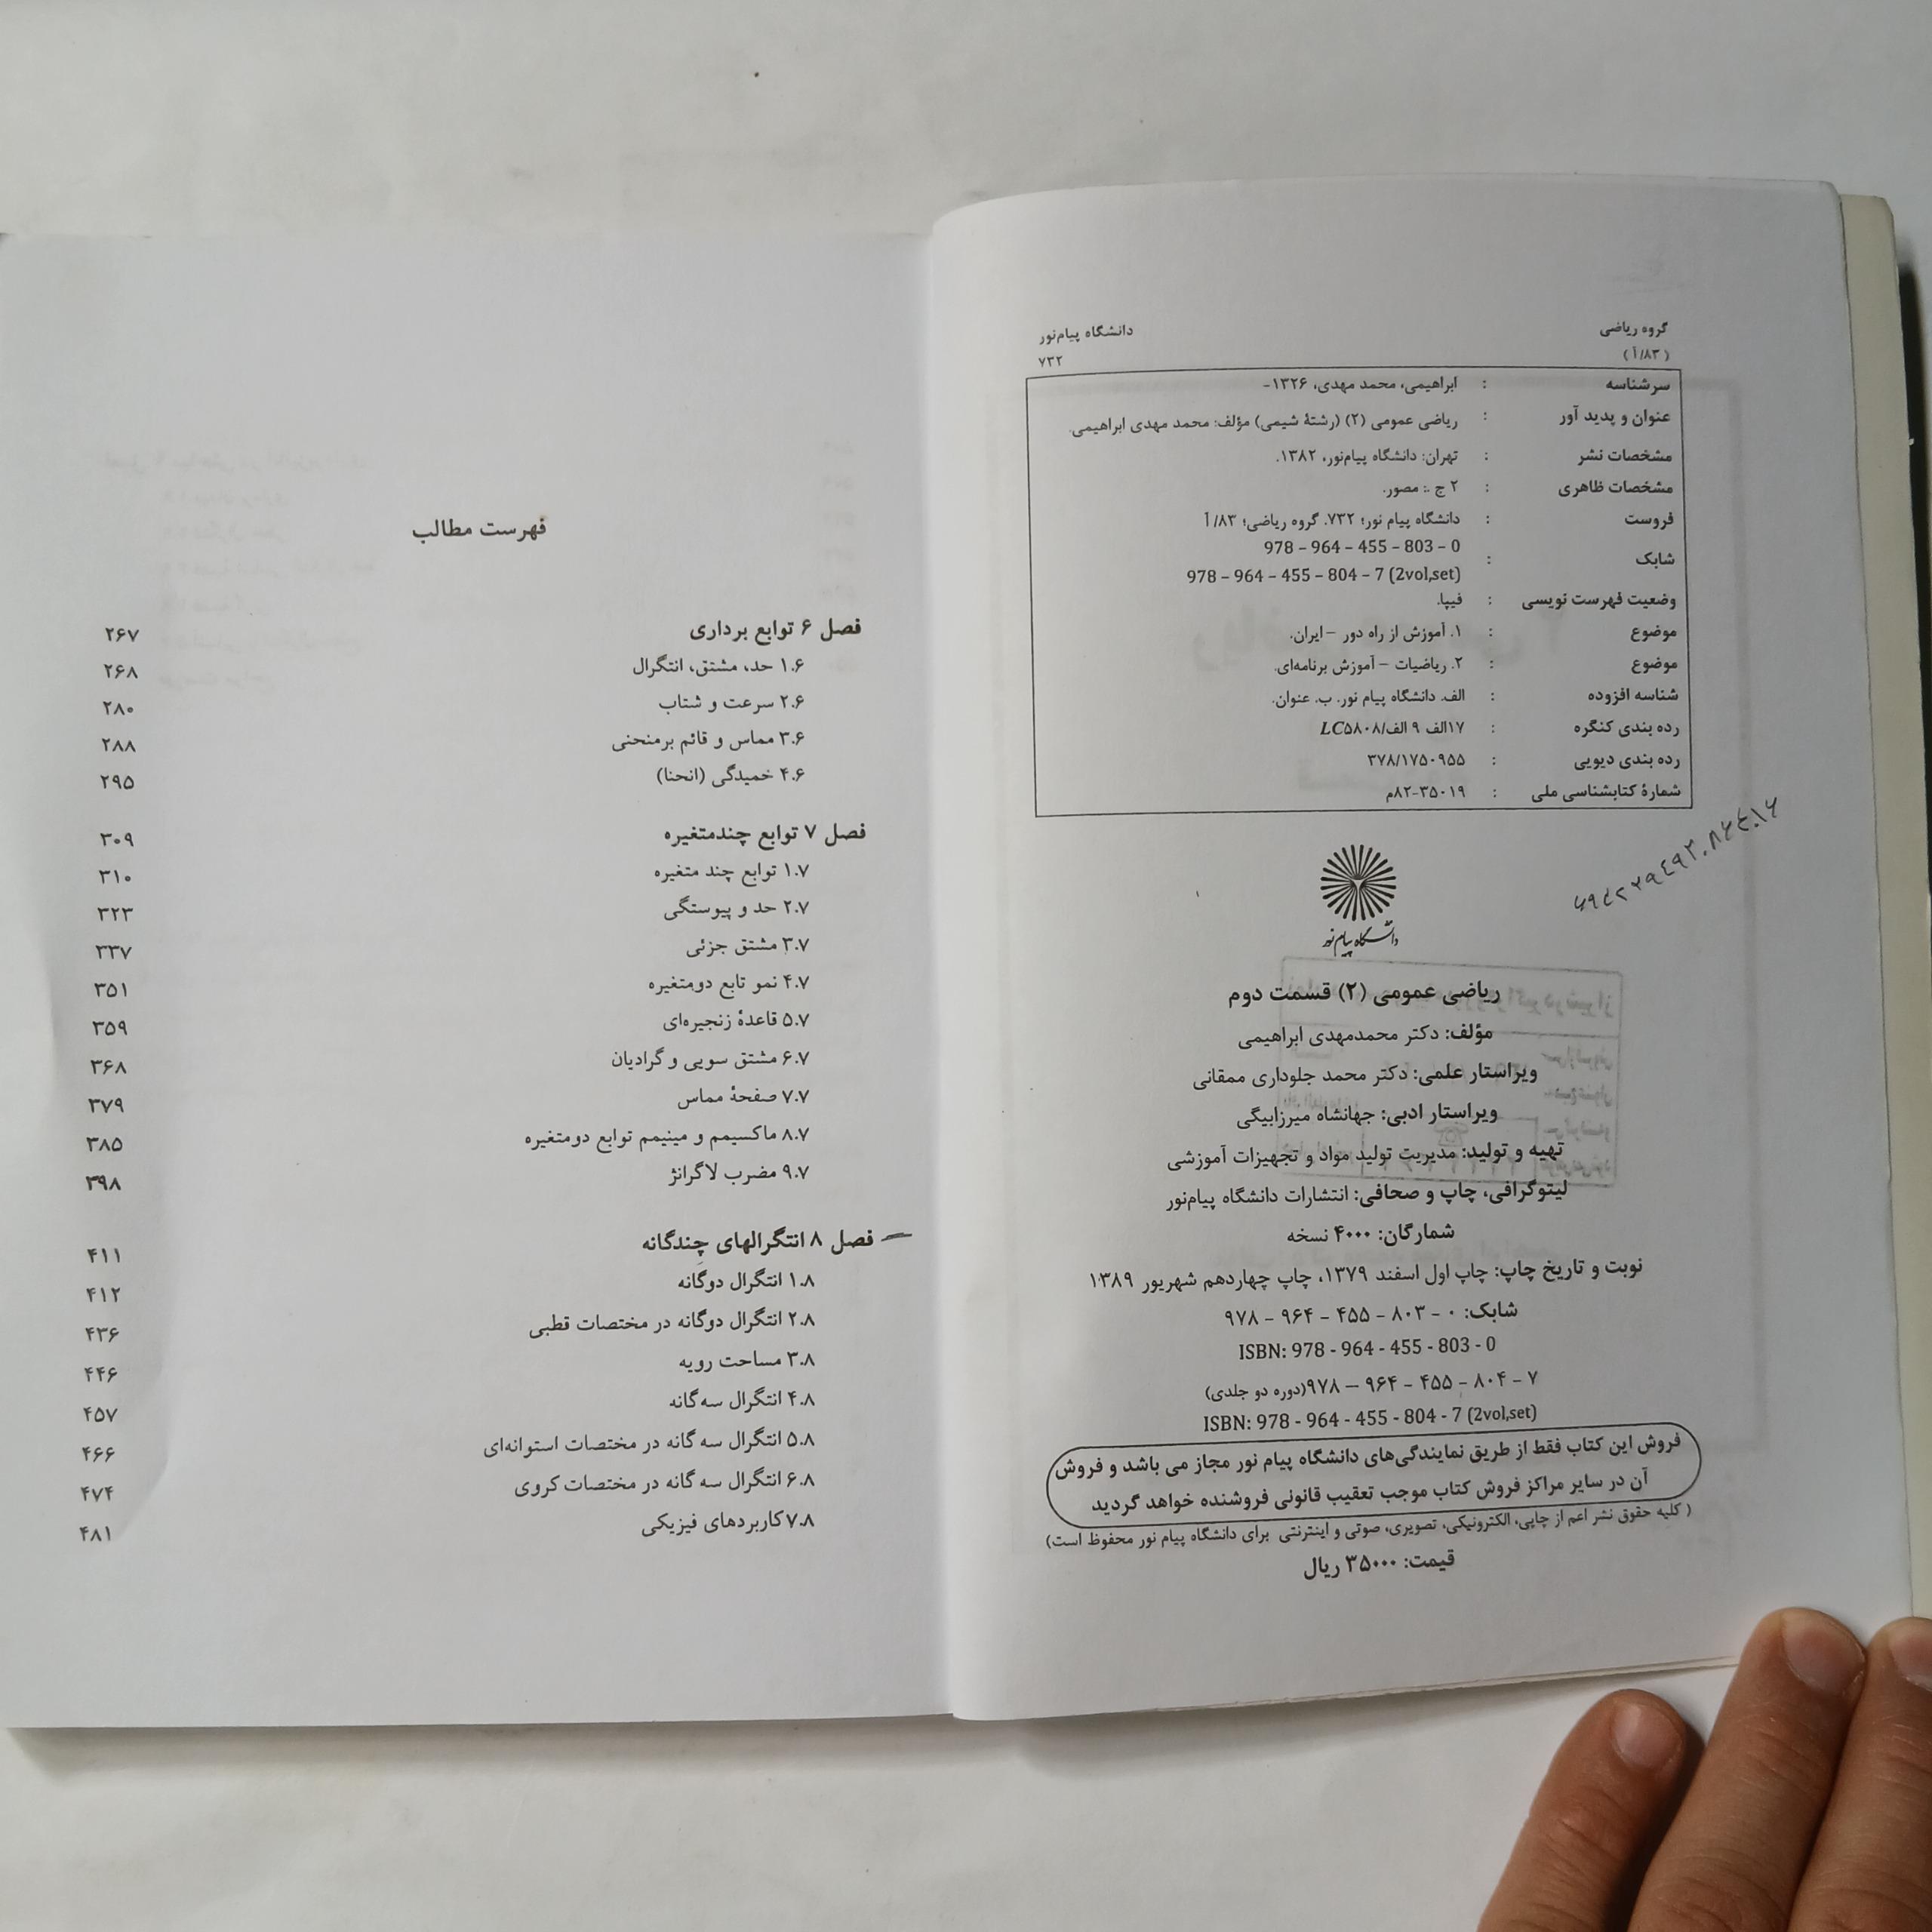 گروه ریاضی
دانشگاه پیام‌نور
(۸۳/آ)
۷۳۲
سرشناسه : ابراهیمی، محمد مهدی، ۱۳۲۶-
عنوان و پدید آور : ریاضی عمومی (۲) (رشتهٔ شیمی) مؤلف: محمد مهدی ابراهیمی.
مشخصات نشر : تهران: دانشگاه پیام‌نور، ۱۳۸۲.
مشخصات ظاهری : ۲ ج .: مصور.
فروست : دانشگاه پیام نور؛ ۷۳۲. گروه ریاضی؛ ۸۳/آ
شابک : 978 – 964 – 455 – 803 – 0
978 – 964 – 455 – 804 – 7 (2vol,set)
وضعیت فهرست نویسی : فیپا.
موضوع : ۱. آموزش از راه دور – ایران.
موضوع : ۲. ریاضیات – آموزش برنامه‌ای.
شناسه افزوده : الف. دانشگاه پیام نور. ب. عنوان.
رده بندی کنگره : ۱۷الف ۹ الف/LC۵۸۰۸
رده بندی دیویی : ۳۷۸/۱۷۵۰۹۵۵
شمارهٔ کتابشناسی ملی : ۳۵۰۱۹-۸۲م
دانشگاه پیام نور
ریاضی عمومی (۲) قسمت دوم
مؤلف: دکتر محمدمهدی ابراهیمی
ویراستار علمی: دکتر محمد جلوداری ممقانی
ویراستار ادبی: جهانشاه میرزابیگی
تهیه و تولید: مدیریت تولید مواد و تجهیزات آموزشی
لیتوگرافی، چاپ و صحافی: انتشارات دانشگاه پیام‌نور
شمارگان: ۴۰۰۰ نسخه
نوبت و تاریخ چاپ: چاپ اول اسفند ۱۳۷۹، چاپ چهاردهم شهریور ۱۳۸۹
شابک: ۰ - ۸۰۳ - ۴۵۵ - ۹۶۴ - ۹۷۸
ISBN: 978 - 964 - 455 - 803 - 0
۷ - ۸۰۴ - ۴۵۵ - ۹۶۴ – ۹۷۸(دوره دو جلدی)
ISBN: 978 - 964 - 455 - 804 - 7 (2vol,set)
فروش این کتاب فقط از طریق نمایندگی‌های دانشگاه پیام نور مجاز می باشد و فروش
آن در سایر مراکز فروش کتاب موجب تعقیب قانونی فروشنده خواهد گردید
( کلیه حقوق نشر اعم از چاپی، الکترونیکی، تصویری، صوتی و اینترنتی برای دانشگاه پیام نور محفوظ است)
قیمت: ۳۵۰۰۰ ریال
فهرست مطالب
فصل ۶ توابع برداری ۲۶۷
۱.۶ حد، مشتق، انتگرال ۲۶۸
۲.۶ سرعت و شتاب ۲۸۰
۳.۶ مماس و قائم برمنحنی ۲۸۸
۴.۶ خمیدگی (انحنا) ۲۹۵
فصل ۷ توابع چندمتغیره ۳۰۹
۱.۷ توابع چند متغیره ۳۱۰
۲.۷ حد و پیوستگی ۳۲۳
۳.۷ مشتق جزئی ۳۳۷
۴.۷ نمو تابع دومتغیره ۳۵۱
۵.۷ قاعدهٔ زنجیره‌ای ۳۵۹
۶.۷ مشتق سویی و گرادیان ۳۶۸
۷.۷ صفحهٔ مماس ۳۷۹
۸.۷ ماکسیمم و مینیمم توابع دومتغیره ۳۸۵
۹.۷ مضرب لاگرانژ ۳۹۸
فصل ۸ انتگرالهای چندگانه ۴۱۱
۱.۸ انتگرال دوگانه ۴۱۲
۲.۸ انتگرال دوگانه در مختصات قطبی ۴۳۶
۳.۸ مساحت رویه ۴۴۶
۴.۸ انتگرال سه‌گانه ۴۵۷
۵.۸ انتگرال سه گانه در مختصات استوانه‌ای ۴۶۶
۶.۸ انتگرال سه گانه در مختصات کروی ۴۷۴
۷.۸ کاربردهای فیزیکی ۴۸۱